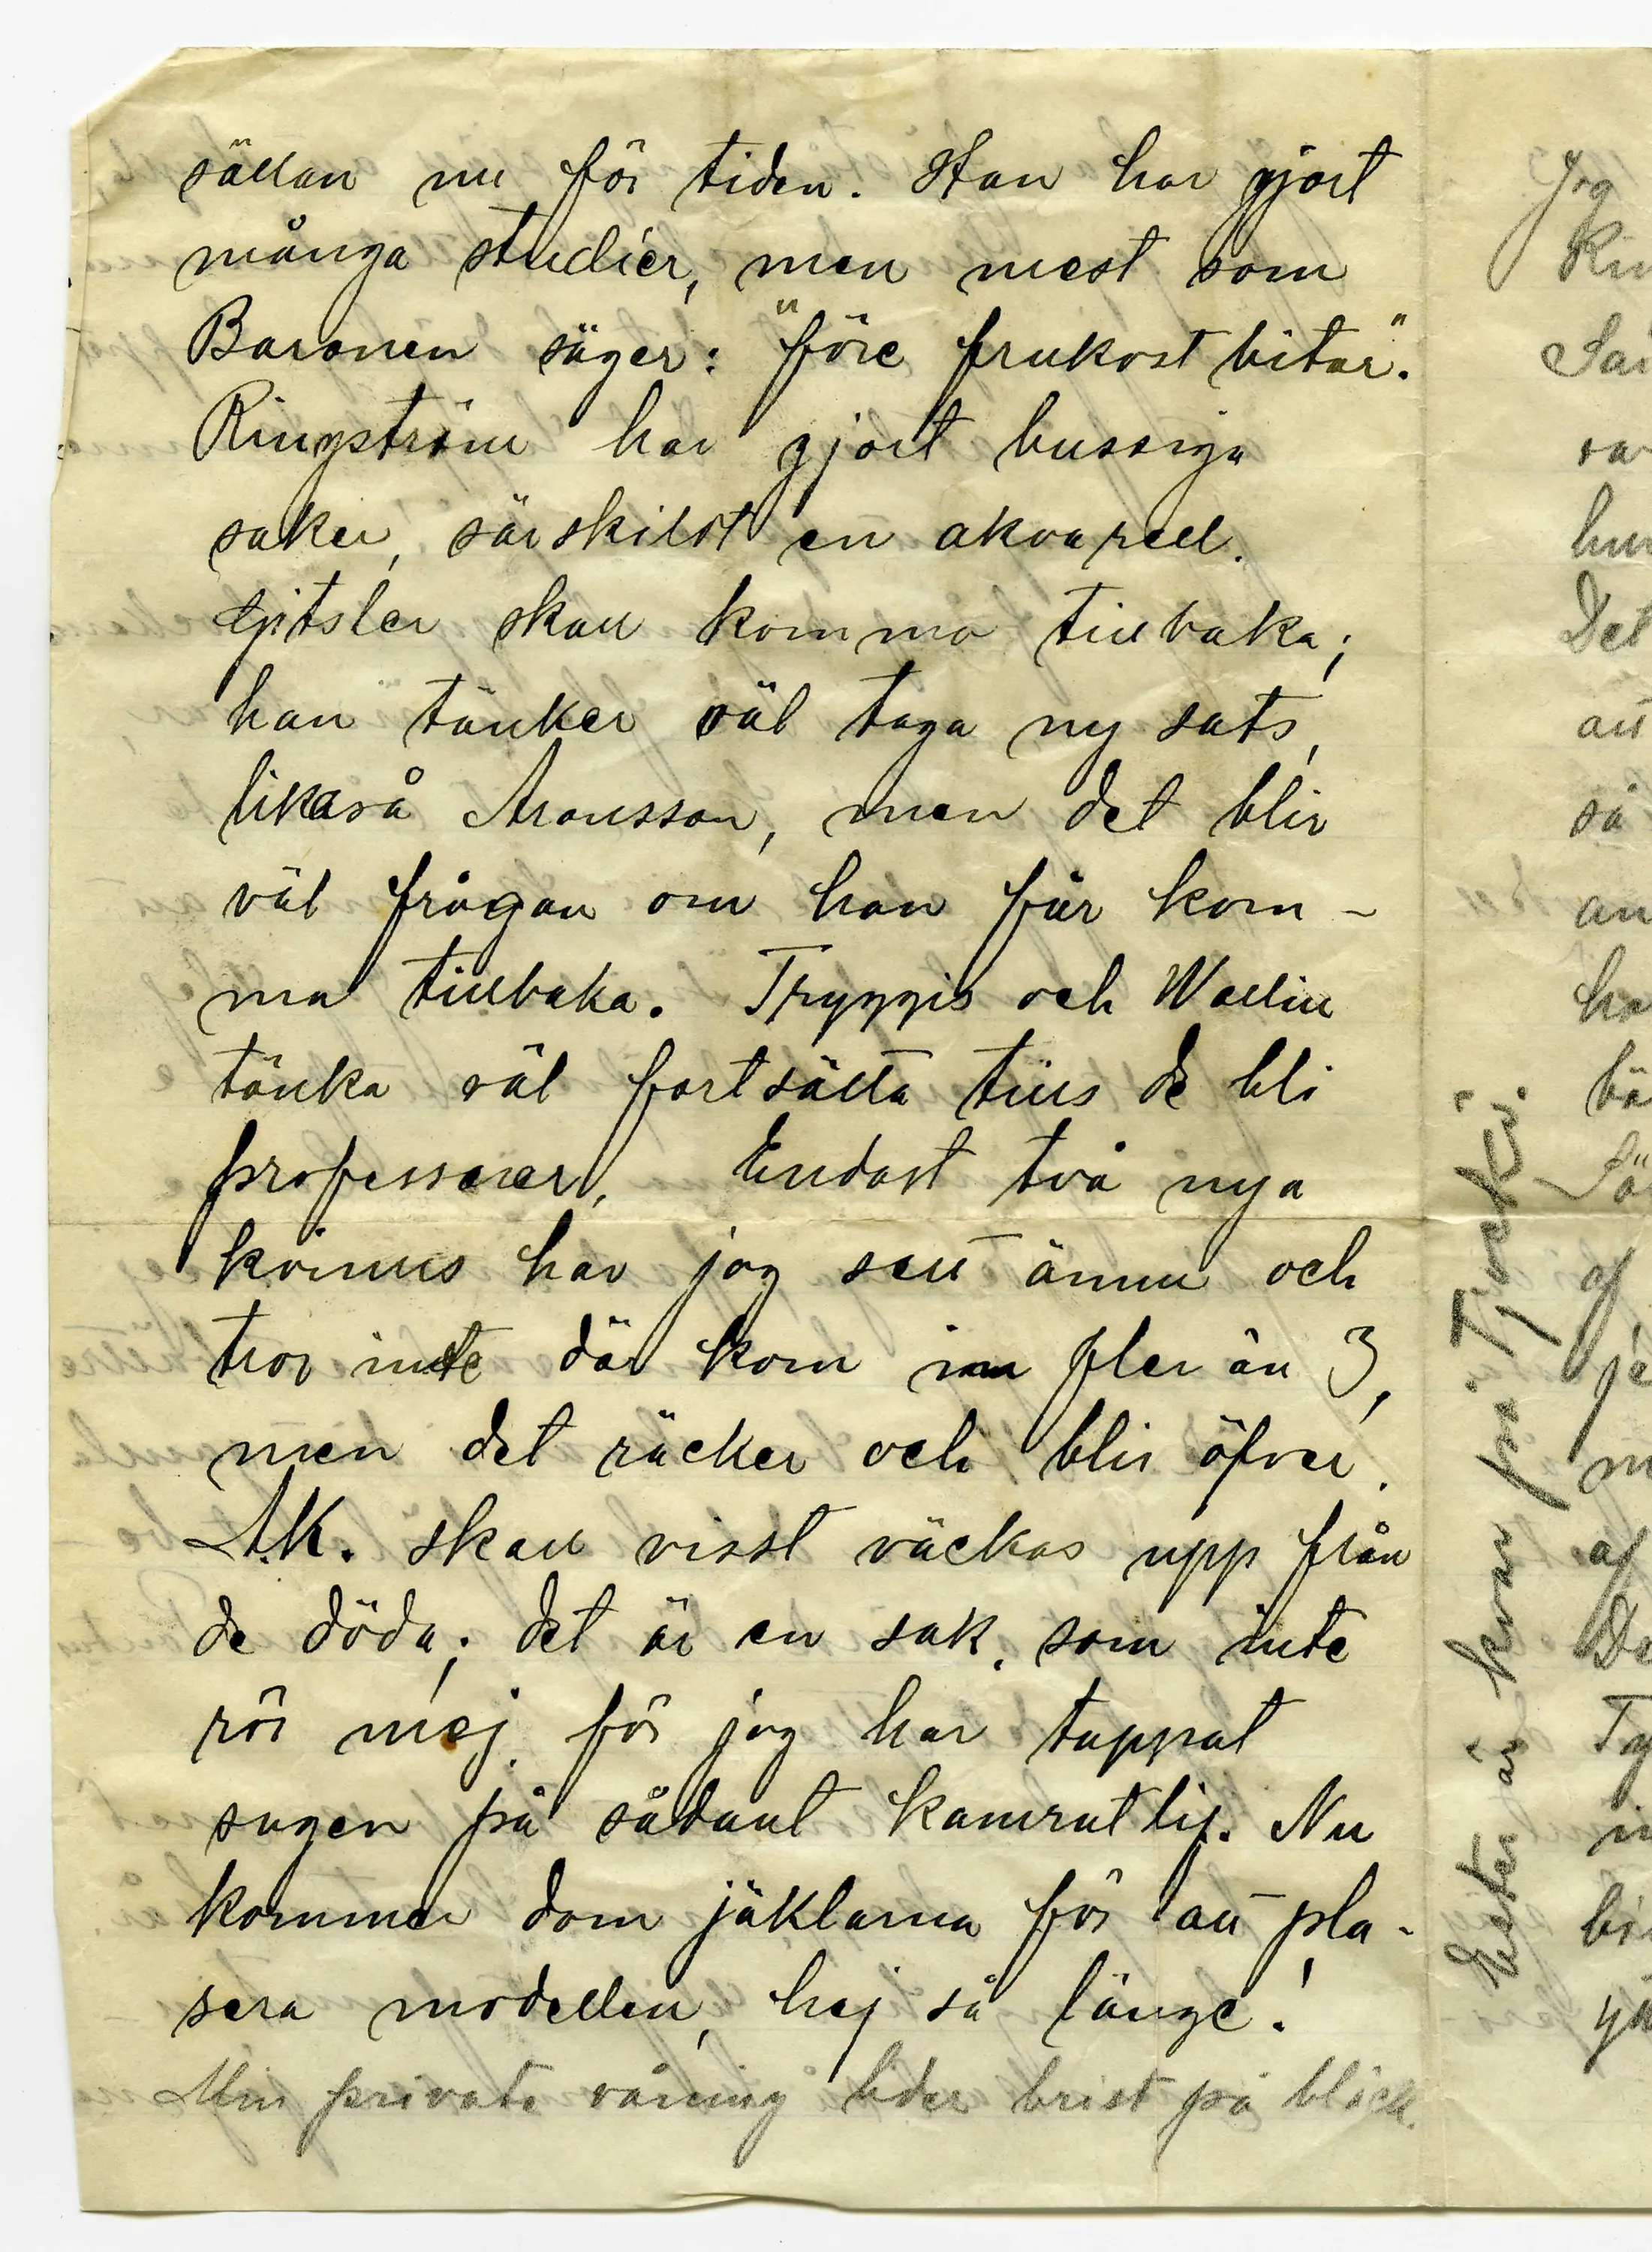 sällan nu för tiden. Han har gjort
många studier, men mest som
Baronen säger: "före frukost bitar".
Ringström har gjort bussiga
saker, särskildt en akvarell.
skall komma tillbaka;
han tänker väl taga ny sats,
likaså Aronsson, men det blir
väl frågan om han får kom-
ma tillbaka. Tryggis och Wallin
tänka väl fortsätta tills de bli
professorer. Endast två nya
kvinns har jag sett ännu och
tror inte där kom in fler än 3,
men det räcker och blir öfver.
A.K. skall visst väckas upp från
de döda; det är en sak, som inte
rör mej, för jag har tappat
sugen på sådant kamratlif. Nu
kommer dom jäklarna för att pla-
sera modellen, hej så länge!
Min privata våning lider brist på bläck.
Ester är kvar på Tjorki.
Jog
Rin
Sai
var
hur
Det
att
så
an
ha
bä
Sö
af
je
m
af
De
Ty
in
bi